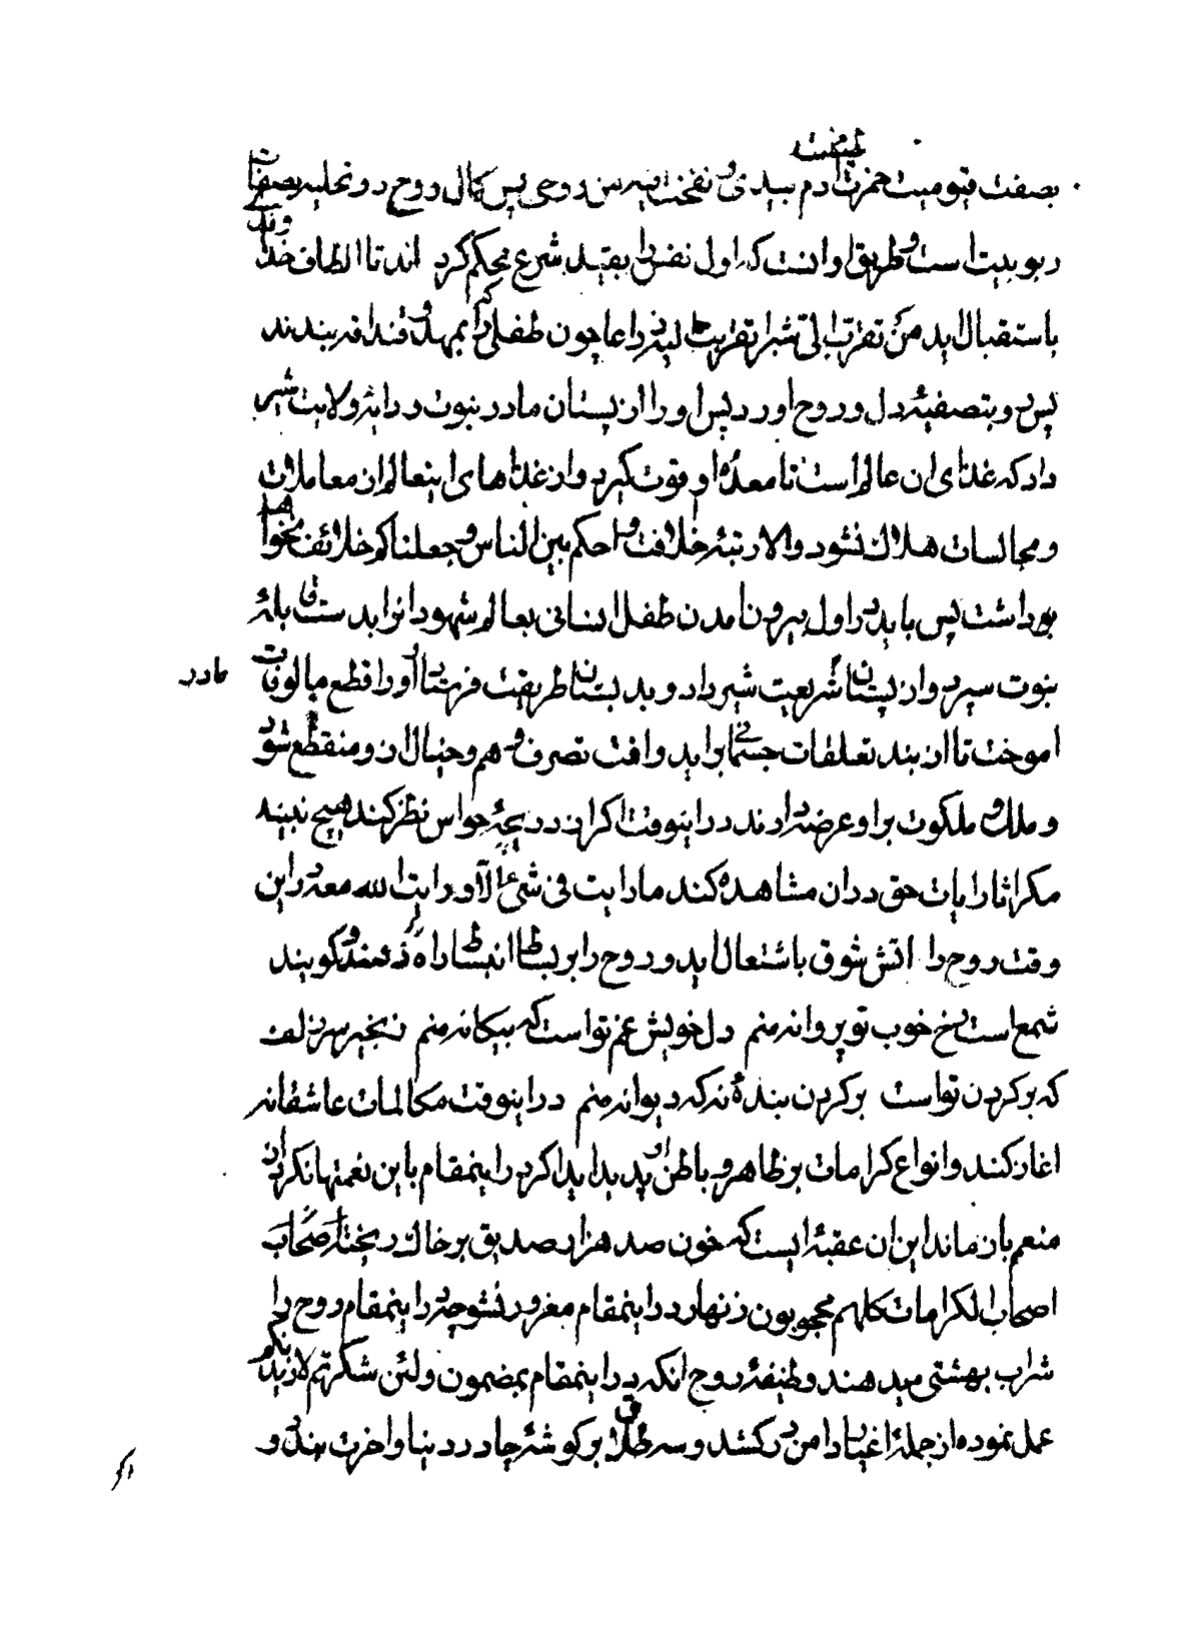 بصفت قیومیت خمرت طینت ادم بیدی و نفخت فیه من روحی پس کمال روح در تحلیه بصفات
ربوبیت است و طریق او انست که اول نفس را بقید شرع محکم کرد اند تا الطاف خداوندی
باستقبال اید من تقرب الی شبرا تقربت الیه ذراعا چون طفلی که را بمهد و قنداقه بندند
پس رو بتصفیهٔ دل و روح اورد پس او را از پستان مادر نبوت و دایهٔ ولایت شیر
داد که غذای ان عالم است تا معدهٔ او قوت گیرد و از غذاهای اینعالم از معاملات
و مجالسات هلاک نشود والا رتبهٔ خلافت و احکم بین الناس و جعلناکم خلائف نخواهد
بورداشت پس باید در اول بیرون امدن طفل انسانی بعالم شهود انرا بدست قابلهٔ
نبوت سپرد و از پستان شریعت شیر داد و بدبستان طریقت فرستاد او را قطع مالوفات مادر
اموخت تا از بند تعلقات جسمانی براید و افت تصرف وهم و خیال از و منقطع شود
و ملک و ملکوت بر او عرضه دارند در اینوقت اگر از دریچهٔ حواس نظر کند هیچ نبیند
مکر اثار ایات حق در ان مشاهده کند ما رایت فی شیء الا و رایت الله معه در این
وقت روح را اتش شوق باشتعال اید و روح را بر بساط انبساط راه دهند و گویند
شمع است رخ خوب تو پروانه منم دل خویش غم تو است که بیگانه منم زنجیر سر زلف
که بر گردن تو است بر گردن بندهٔ نه که دیوانه منم در اینوقت مکالمات عاشقانه
اغاز کنند و انواع کرامات بر ظاهر و باطن او پدید اید اگر در اینمقام باین نعمتها نکران
منعم باز ماند این ان عقبهٔ ایست که خون صد هزار صدیق بر خاک ریخته
اصحاب الکرامات کلهم محجوبون زنهار در اینمقام مغرور نشو چه در اینمقام روح را
شراب بهشتی میدهند وظیفهٔ روح انکه در اینمقام بمضمون و لئن شکرتم لازیدنکم
عمل نموده از جملهٔ اغیار دامن در کشد و سه طلاق بر گوشهٔ چادر دنیا و اخرت بندد و